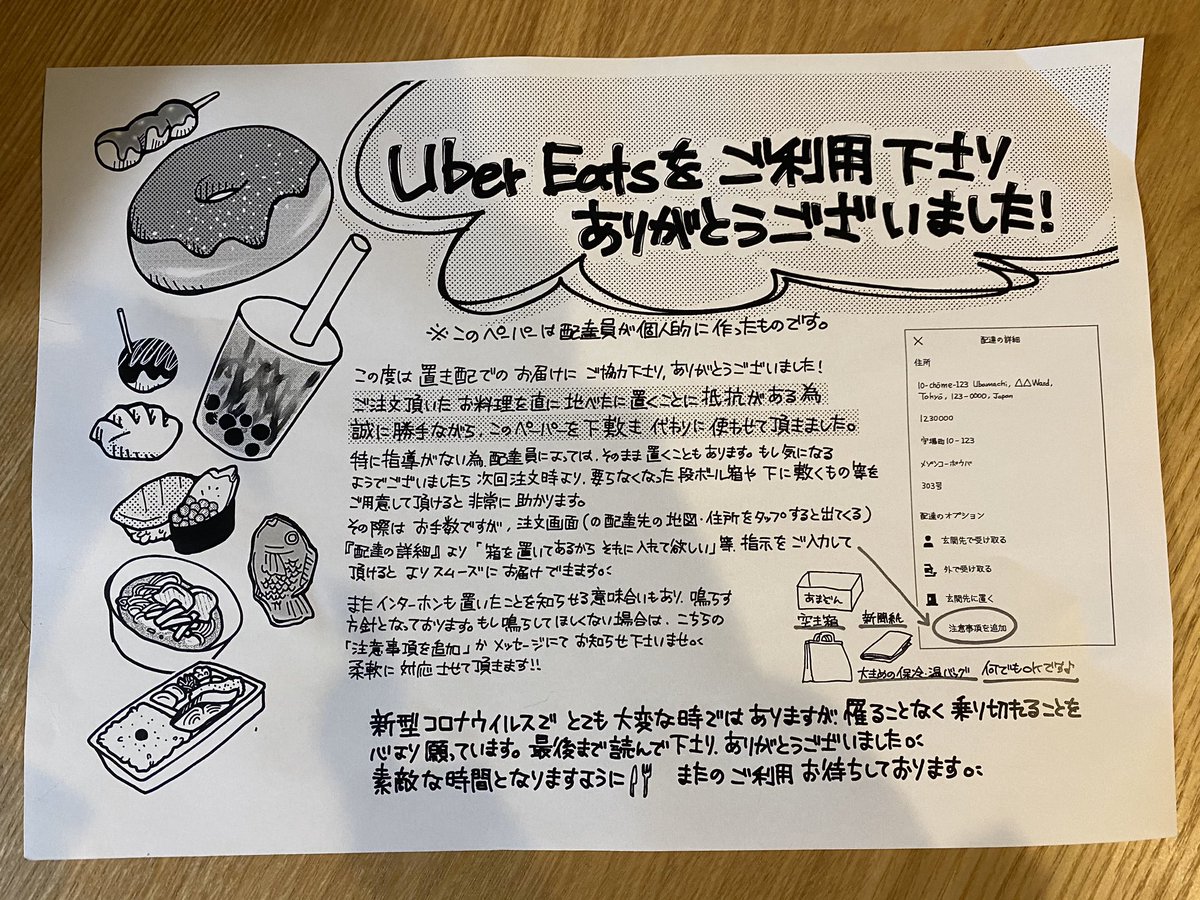 Uber Eatsを ご利用 下さり
ありがとうございました！
※このペーパーは配達員が個人的に作ったものです。
この度は 置き配での お届けに ご協力下さり、ありがとうございました！
ご注文頂いた お料理を直に 地べたに 置くことに 抵抗がある為
誠に勝手ながら、このペーパーを 下敷き 代わりに 使わせて頂きました。
特に指導がない為、配達員によっては、そのまま 置くこともあります。もし気になる
ようでございましたら 次回注文時より、要らなくなった 段ボール箱や 下に敷くもの等を
ご用意して頂けると 非常に助かります。
その際は お手数ですが、注文画面（の配達先の地図・住所をタップすると出てくる）
『配達の詳細』より「箱を置いてあるから それに入れて欲しい」等、指示をご入力して
頂けると よりスムーズに お届けできます。
またインターホンも 置いたことを知らせる 意味合いもあり、鳴らす
方針となっております。もし鳴らしてほしくない場合は、こちらの
「注意事項を追加」か メッセージにて お知らせ下さいませ。
柔軟に 対応させて頂きます!!
✕ 配達の詳細
住所
10-chōme-123 Ubamachi, △△Ward,
Tokyō, 123-0000, Japan
1230000
宇場町10-123
メゾンコーポウバ
303号
配達のオプション
玄関先で受け取る
外で受け取る
玄関先に置く
注意事項を追加
あまどん
空き箱
新聞紙
大きめの保冷・温バッグ
何でもOKです♪
新型コロナウイルスで とても 大変な時では ありますが、罹ることなく 乗り切れることを
心より 願っています。最後まで 読んで下さり、ありがとうございました。
素敵な時間となりますように
またのご利用 お待ちしております。